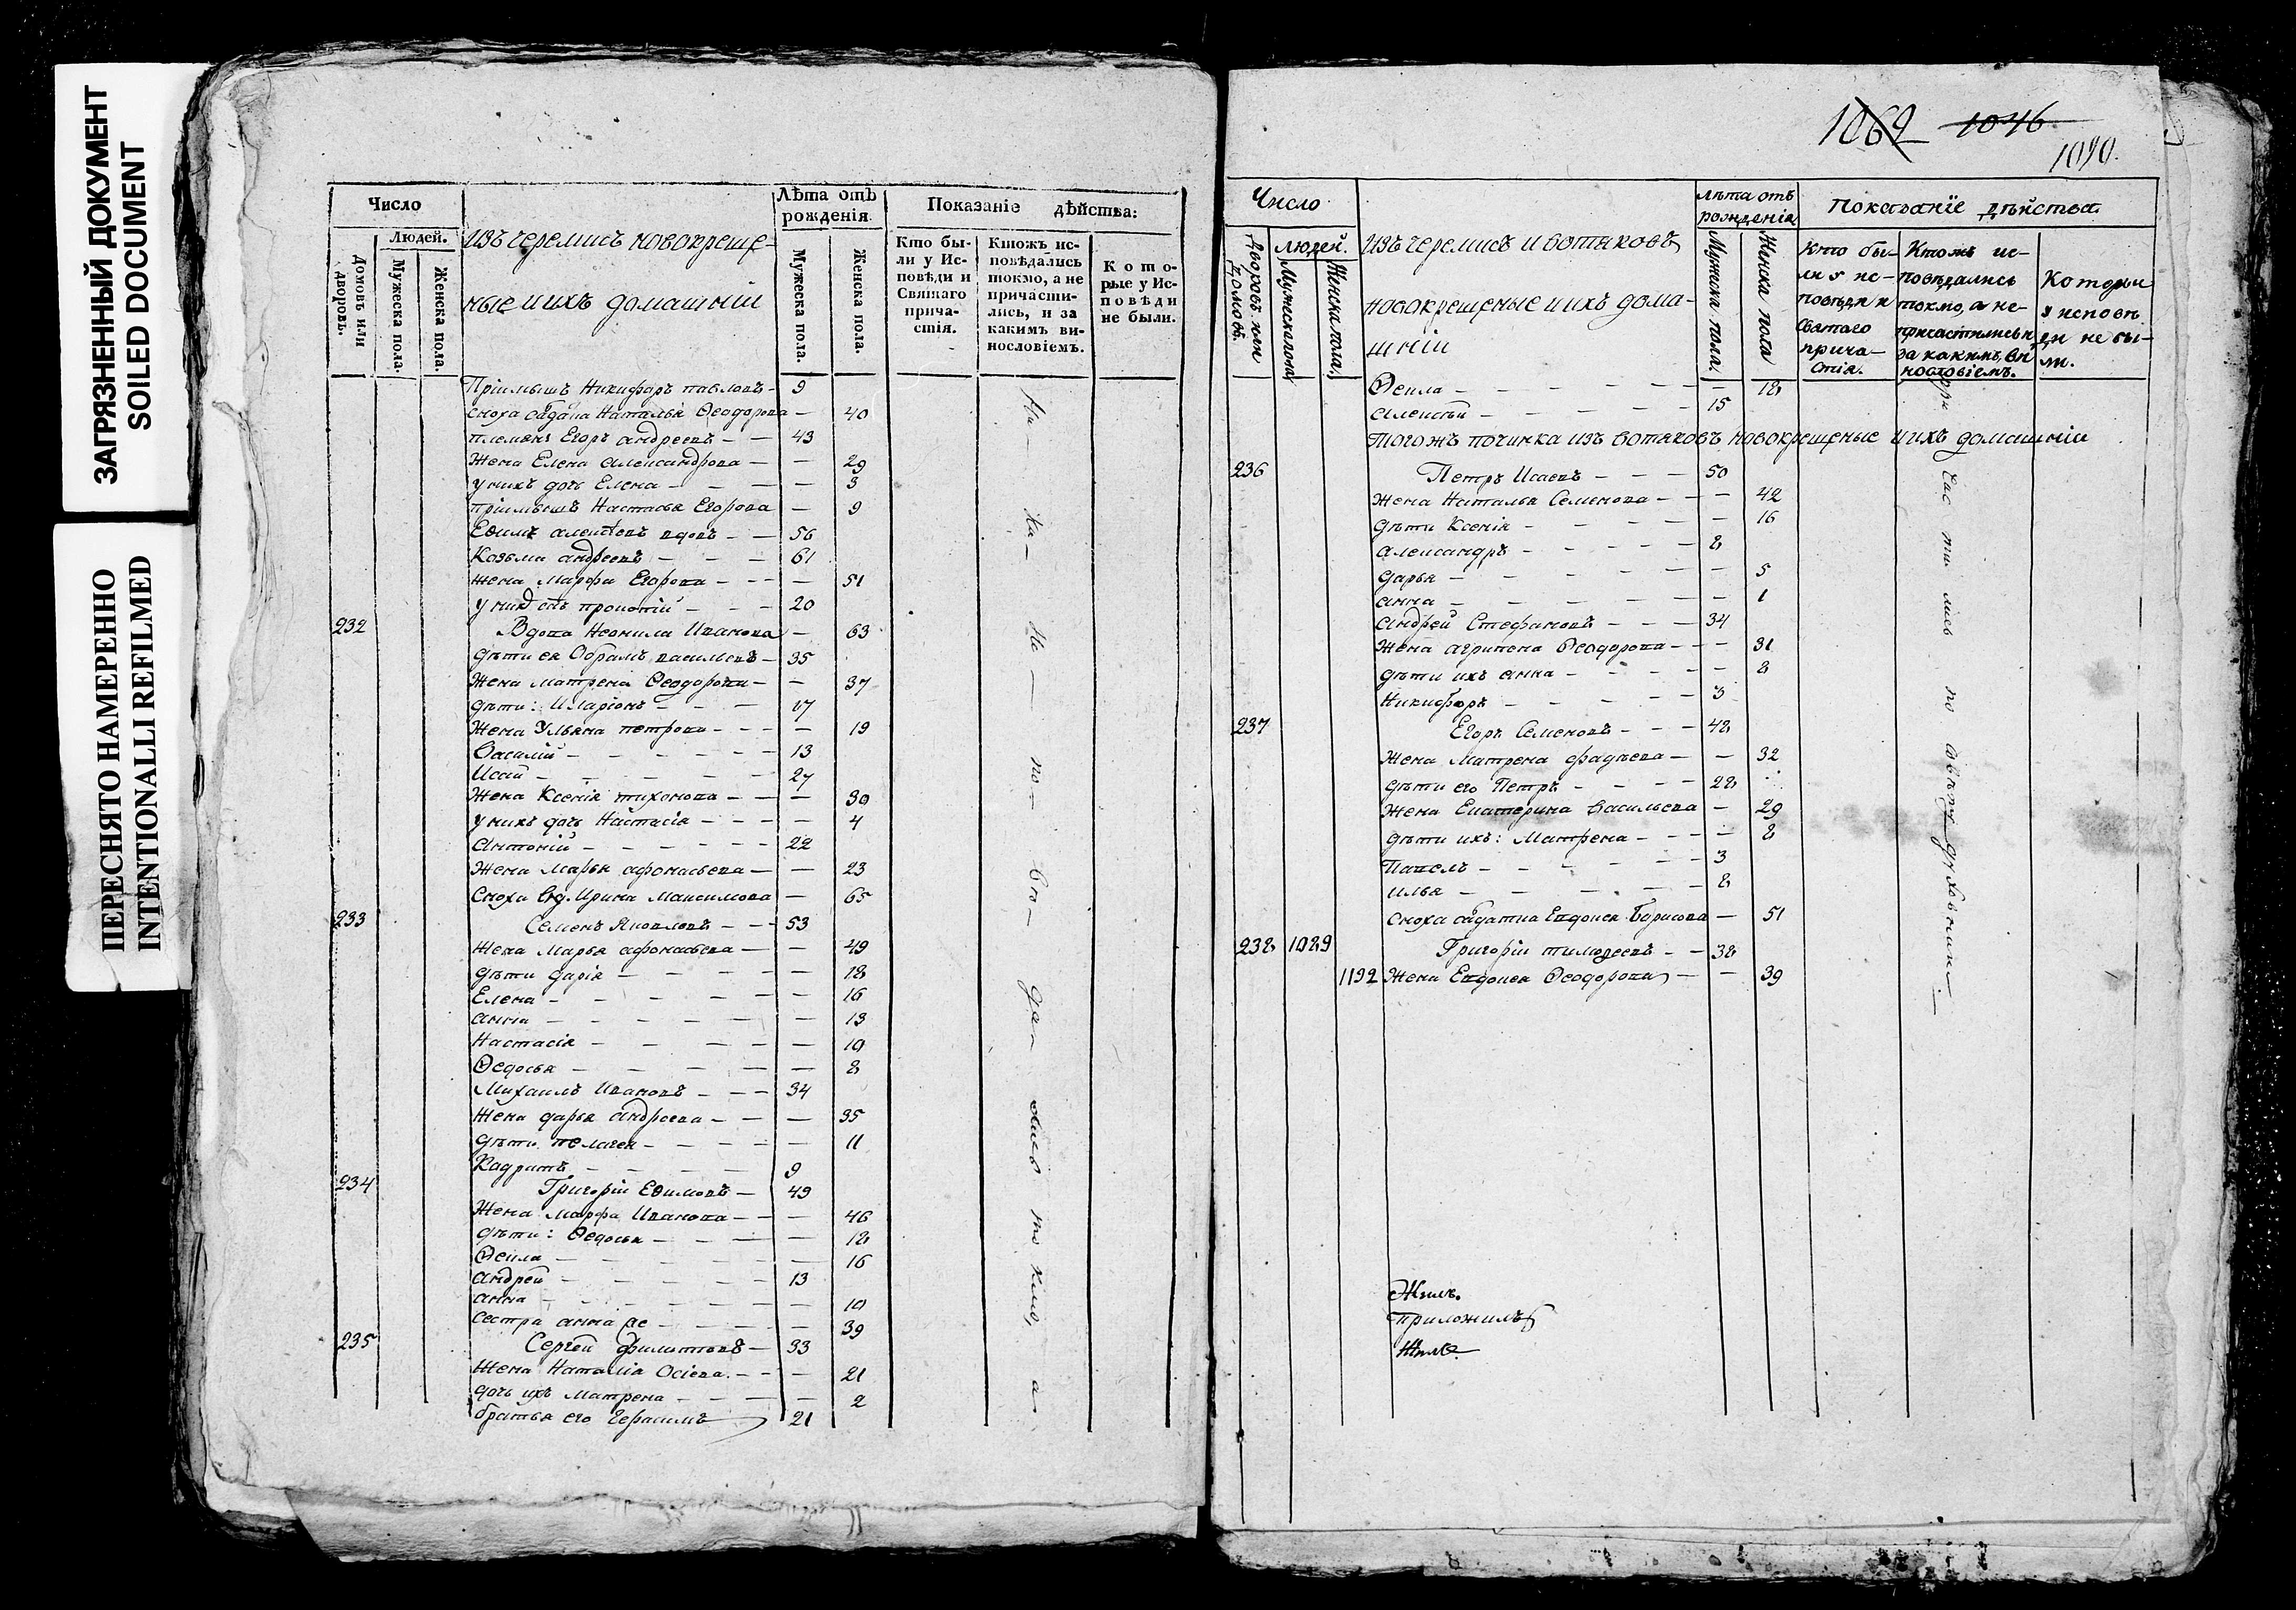 ЗАГРЯЗНЕННЫЙ ДОКУМЕНТ
SOILED DOCUMENT
ПЕРЕСНЯТО НАМЕРЕННО
INTENTIONALLI REFILMED
Число
Людей.
Домовъ или дворовъ.
Мужеска пола.
Женска пола.
изъ черемисъ новокреще-
ные и ихъ домашніи
Лѣта отъ рожденія.
Мужеска пола.
Женска пола.
Показаніе дѣйства:
Кто бы-
ли у Ис-
повѣди и
Святаго
прича-
стія.
Ктожъ ис-
повѣдались
токмо, а не
причасти-
лись, и за
какимъ ви-
нословіемъ.
Кото-
рые у Ис-
повѣди
не были.
Пріимышъ Никифоръ павловъ 9
сноха Наталья Ѳеодорова 40
племян Егоръ андреевъ 43
Жена Елена александрова 29
у нихъ дочь Елена 3
пріимышъ Настасья Егорова 9
Евѳимъ алексѣевъ вдовъ 56
Козьма андреевъ 61
Жена Марфа Егорова 51
у них прокопій 20
232 Вдова Неонила Иванова 63
дѣти ея Обрамъ васильевъ 35
Жена матрена Ѳеодорова 37
дѣти: Иларіонъ 17
Жена Ульяна петрова 19
Василій 13
Исай 27
Жена Ксенія тихонова 30
у нихъ дочь Настасія 4
Антоній 22
Жена Марья афонасьева 23
Сноха вд. Ирина Максимова 65
233 Семенъ Яковлевъ 53
Жена Марья афонасьева 49
дѣти дарія 18
Елена 16
анна 13
Настасія 10
Ѳедосья 8
Михаилъ Ивановъ 34
Жена дарья андреева 35
дѣти пелагея 11
Кадратъ 9
234 Григорій Еѳимовъ 49
Жена Марфа Иванова 46
дѣти: Ѳедосья 18
Ѳекла 16
андрей 13
анна 10
сестра анна 39
235 Сергей филиповъ 33
Жена Наталія Осіева 21
дочь ихъ матрена 2
братья его Герасимъ 21
1062 1046
1090.
Число
Дворовъ или домовъ.
людей.
Мужеска пола
Женска пола.
изъ черемисъ и вотяковъ
новокрещеные и ихъ дома-
шніи
лѣта отъ рожденія
Мужеска пола.
Женска пола
показаніе дѣйства
Кто бы-
ли у ис-
повѣди и
святаго
прича-
стія.
Ктожъ ис-
повѣдались
токмо, а не-
причастились и
за какимъ ви
нословіемъ.
Которые
у исповѣ
ди не бы-
ли.
Ѳекла 18
алексѣй 15
тогожъ починка изъ вотяковъ новокрещеные и ихъ домашніи
236 Петръ Исаевъ 50
жена Наталья Семенова 42
дѣти Ксенія 16
александръ 8
дарья 5
анна 1
андрей Стефановъ 34
Жена агрипена Ѳеодорова 31
дѣти ихъ анна 8
Никифоръ 3
237 Егоръ Семеновъ 48
Жена Матрена фадѣева 32
дѣти его Петръ 28
жена Екатерина васильева 29
дѣти ихъ: Матрена 8
Павелъ 3
илья 8
сноха Евдокея Борисова 51
238 1089 Григорій тимоѳеевъ 38
1192 Жена Евдокея Ѳеодорова 39
приложилъ